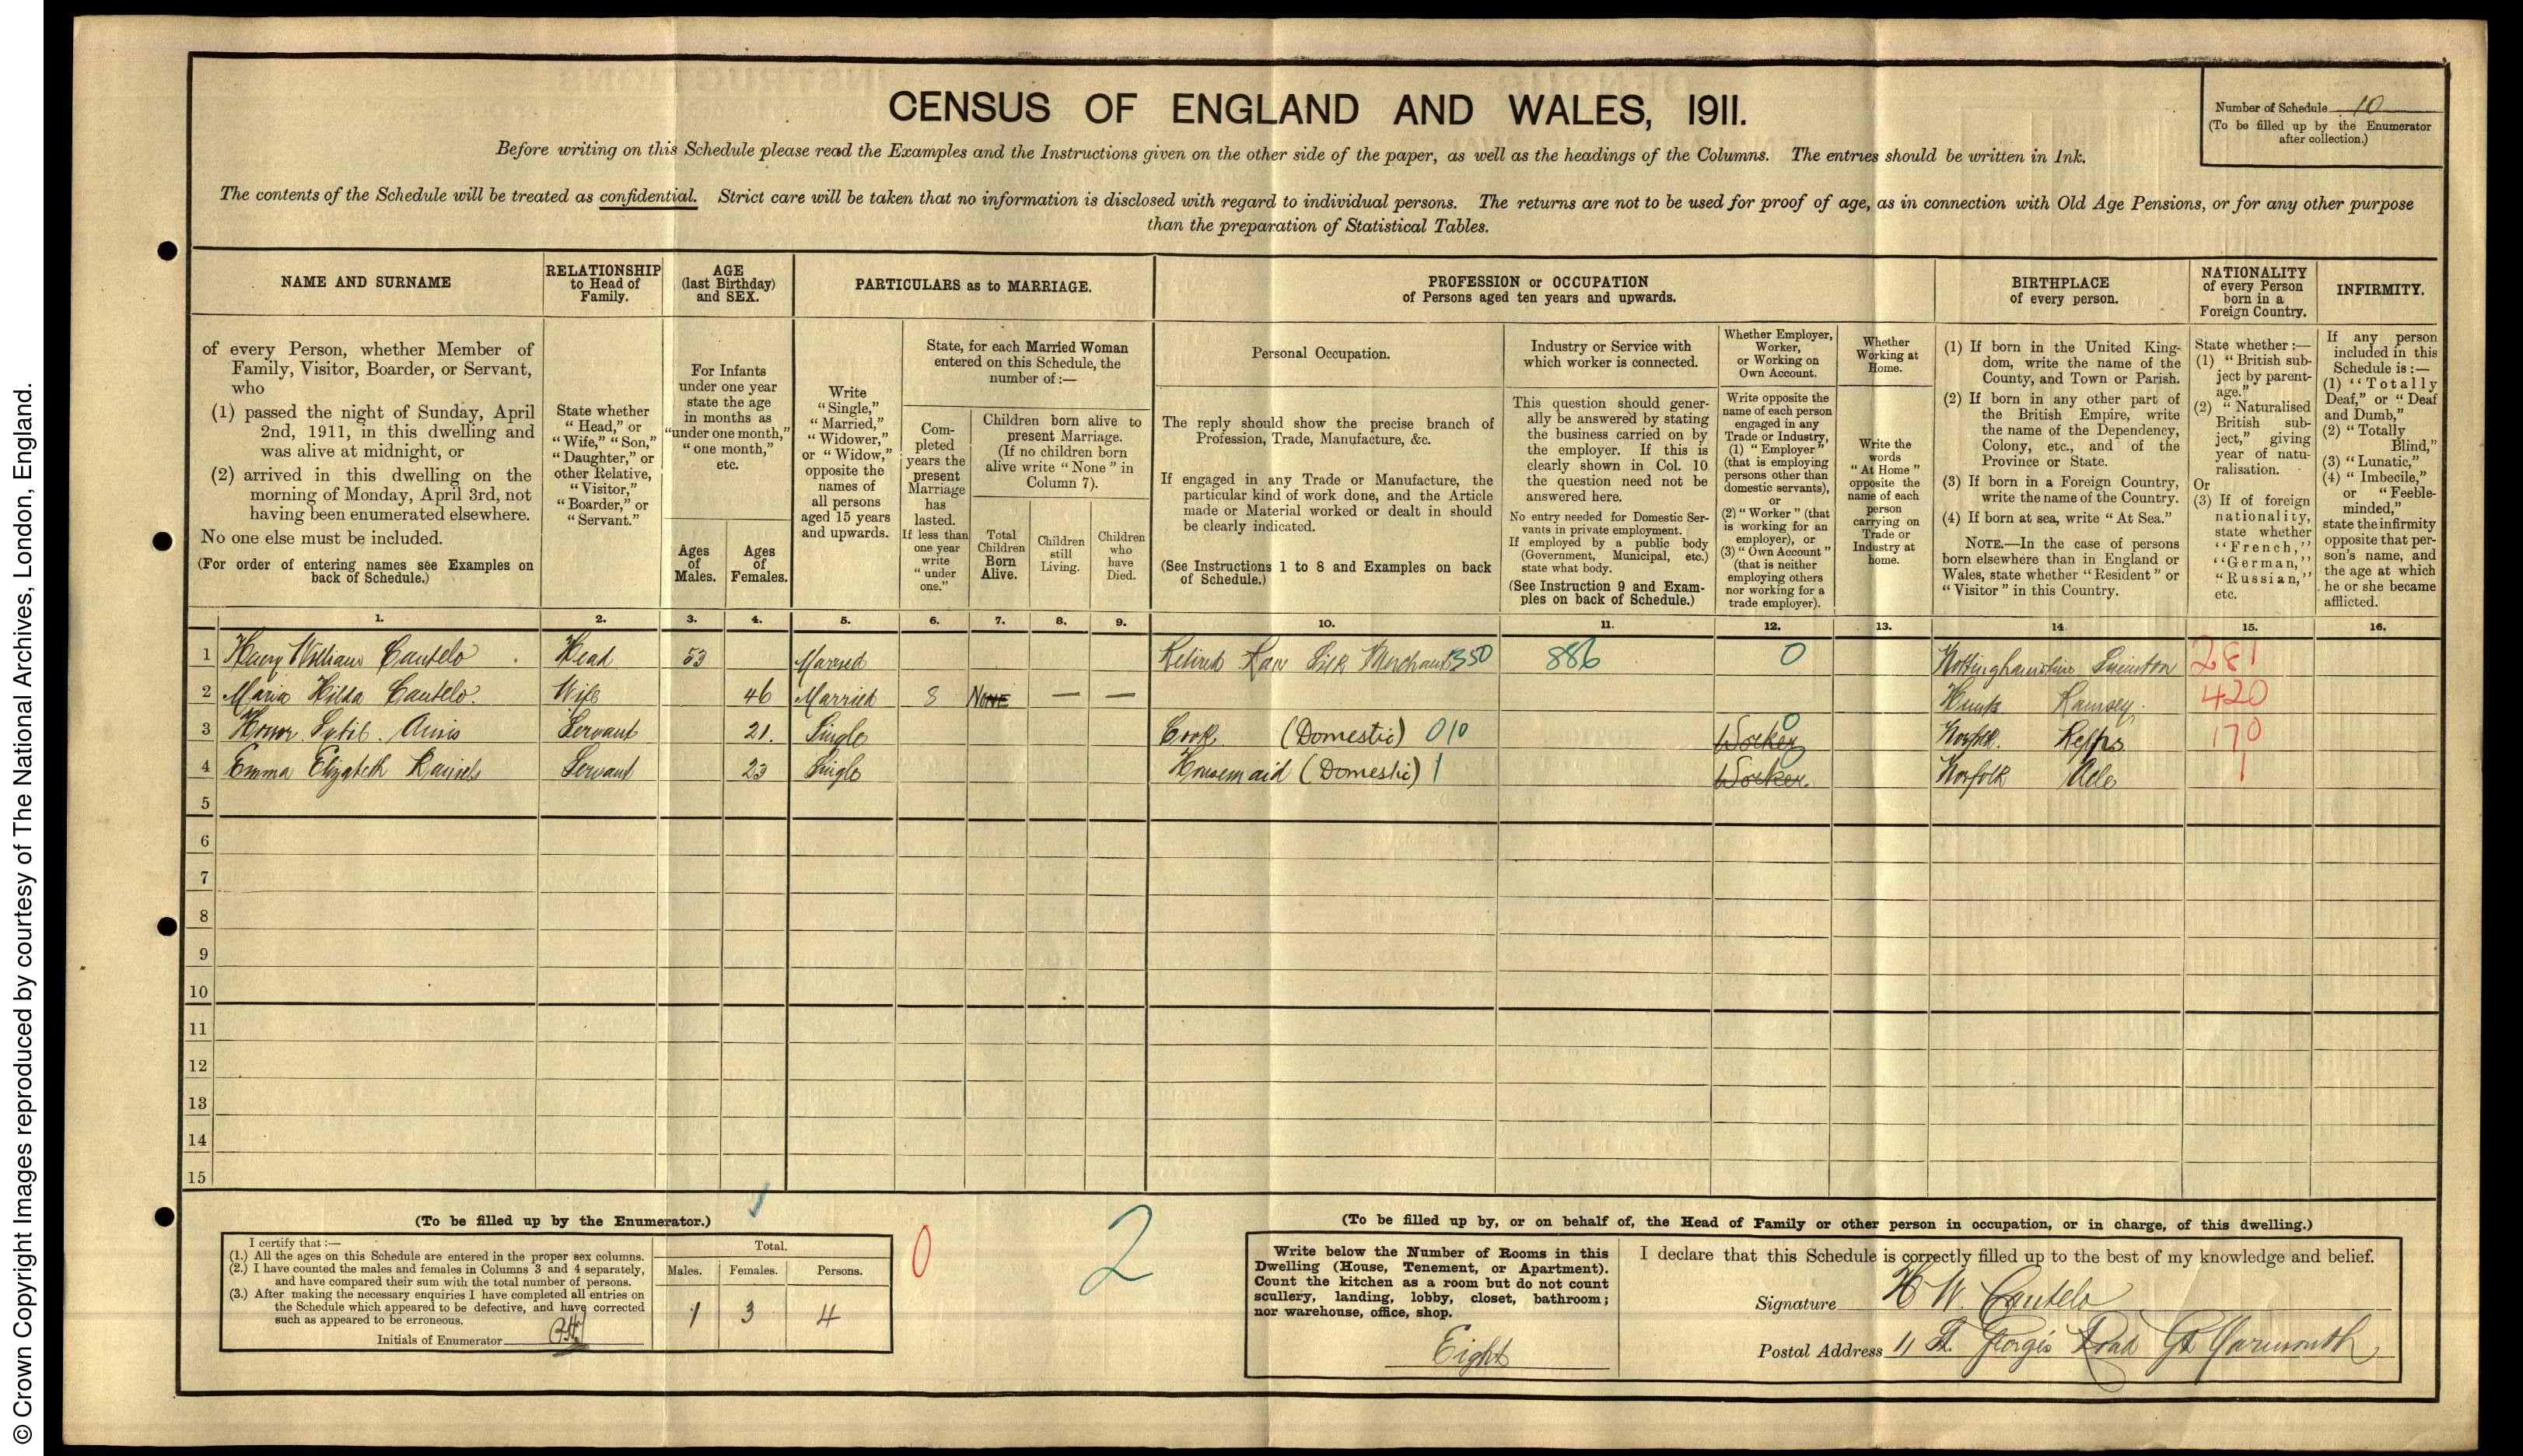 CENSUS OF ENGLAND AND WALES, 1911.
Number of Schedule 10
(To be filled up by the Enumerator
after collection.)
Before writing on this Schedule please read the Examples and the Instructions given on the other side of the paper, as well as the headings of the Columns. The entries should be written in Ink.
The contents of the Schedule will be treated as confidential. Strict care will be taken that no information is disclosed with regard to individual persons. The returns are not to be used for proof of age, as in connection with Old Age Pensions, or for any other purpose
than the preparation of Statistical Tables.
NAME AND SURNAME
of every Person, whether Member of
Family, Visitor, Boarder, or Servant,
who
(1) passed the night of Sunday, April
2nd, 1911, in this dwelling and
was alive at midnight, or
(2) arrived in this dwelling on the
morning of Monday, April 3rd, not
having been enumerated elsewhere.
No one else must be included.
(For order of entering names see Examples on
back of Schedule.)
RELATIONSHIP
to Head of
Family.
State whether
"Head," or
"Wife," "Son,"
"Daughter," or
other Relative,
"Visitor,"
"Boarder," or
"Servant."
AGE
(last Birthday)
and SEX.
For Infants
under one year
state the age
in months as
"under one month,"
"one month,"
etc.
Ages
of
Males.
Ages
of
Females.
PARTICULARS as to MARRIAGE.
Write
"Single,"
"Married,"
"Widower,"
or "Widow,"
opposite the
names of
all persons
aged 15 years
and upwards.
State, for each Married Woman
entered on this Schedule, the
number of:—
Com-
pleted
years the
present
Marriage
has
lasted.
If less than
one year
write
"under
one."
Children born alive to
present Marriage.
(If no children born
alive write "None" in
Column 7).
Total
Children
Born
Alive.
Children
still
Living.
Children
who
have
Died.
PROFESSION or OCCUPATION
of Persons aged ten years and upwards.
Personal Occupation.
The reply should show the precise branch of
Profession, Trade, Manufacture, &c.
If engaged in any Trade or Manufacture, the
particular kind of work done, and the Article
made or Material worked or dealt in should
be clearly indicated.
(See Instructions 1 to 8 and Examples on back
of Schedule.)
Industry or Service with
which worker is connected.
This question should gener-
ally be answered by stating
the business carried on by
the employer. If this is
clearly shown in Col. 10
the question need not be
answered here.
No entry needed for Domestic Ser-
vants in private employment.
If employed by a public body
(Government, Municipal, etc.)
state what body.
(See Instruction 9 and Exam-
ples on back of Schedule.)
Whether Employer,
Worker,
or Working on
Own Account.
Write opposite the
name of each person
engaged in any
Trade or Industry,
(1) "Employer"
(that is employing
persons other than
domestic servants),
or
(2) "Worker" (that
is working for an
employer), or
(3) "Own Account"
(that is neither
employing others
nor working for a
trade employer).
Whether
Working at
Home.
Write the
words
"At Home"
opposite the
name of each
person
carrying on
Trade or
Industry at
home.
BIRTHPLACE
of every person.
(1) If born in the United King-
dom, write the name of the
County, and Town or Parish.
(2) If born in any other part of
the British Empire, write
the name of the Dependency,
Colony, etc., and of the
Province or State.
(3) If born in a Foreign Country,
write the name of the Country.
(4) If born at sea, write "At Sea."
NOTE.—In the case of persons
born elsewhere than in England or
Wales, state whether "Resident" or
"Visitor" in this Country.
NATIONALITY
of every Person
born in a
Foreign Country.
State whether :—
(1) "British sub-
ject by parent-
age."
(2) "Naturalised
British sub-
ject," giving
year of natu-
ralisation.
Or
(3) If of foreign
nationality,
state whether
"French,"
"German,"
"Russian,"
etc.
INFIRMITY.
If any person
included in this
Schedule is:—
(1) "Totally
Deaf," or "Deaf
and Dumb,"
(2) "Totally
Blind,"
(3) "Lunatic,"
(4) "Imbecile,"
or "Feeble-
minded,"
state the infirmity
opposite that per-
son's name, and
the age at which
he or she became
afflicted.
1. 2. 3. 4. 5. 6. 7. 8. 9. 10. 11. 12. 13. 14. 15. 16.
1 Henry William Cantelo Head 53 Married Retired Raw Silk Merchant 350 886 0 Nottinghamshire 281
2 Maria Hilda Cantelo. Wife 46 Married 8 None — — Hunts Ramsey. 420
3 Honor Sybil Amis Servant 21. Single Cook (Domestic) 010 0 Worker Norfolk. Repps 170
4 Emma Elizabeth Daniels Servant 23 Single Housemaid (Domestic) 1 Worker Norfolk Acle 1
5
6
7
8
9
10
11
12
13
14
15
(To be filled up by the Enumerator.)
I certify that:—
(1.) All the ages on this Schedule are entered in the proper sex columns.
(2.) I have counted the males and females in Columns 3 and 4 separately,
and have compared their sum with the total number of persons.
(3.) After making the necessary enquiries I have completed all entries on
the Schedule which appeared to be defective, and have corrected
such as appeared to be erroneous.
Initials of Enumerator
Total.
Males. Females. Persons.
1 3 4
0 2
(To be filled up by, or on behalf of, the Head of Family or other person in occupation, or in charge, of this dwelling.)
Write below the Number of Rooms in this
Dwelling (House, Tenement, or Apartment).
Count the kitchen as a room but do not count
scullery, landing, lobby, closet, bathroom;
nor warehouse, office, shop.
Eight
I declare that this Schedule is correctly filled up to the best of my knowledge and belief.
Signature H W. Cantelo
Postal Address 11 St. George's Road Gt Yarmouth
© Crown Copyright Images reproduced by courtesy of The National Archives, London, England.